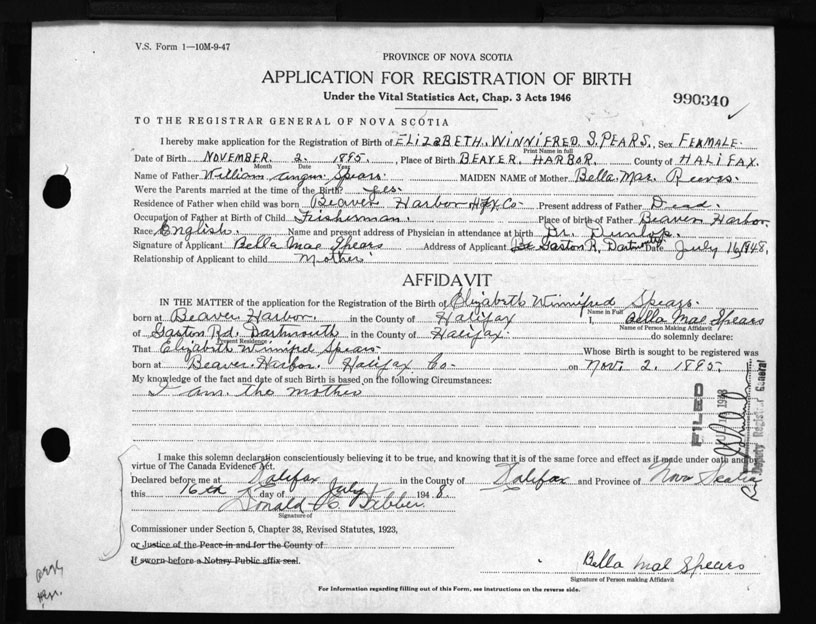 V.S. Form 1—10M-9-47
PROVINCE OF NOVA SCOTIA
APPLICATION FOR REGISTRATION OF BIRTH
Under the Vital Statistics Act, Chap. 3 Acts 1946
990340
TO THE REGISTRAR GENERAL OF NOVA SCOTIA
I hereby make application for the Registration of Birth of ELIZABETH WINNIFRED SPEARS. Sex FEMALE.
Print Name in full
Date of Birth NOVEMBER 2. 1895. Place of Birth BEAVER HARBOR. County of HALIFAX.
Month Date Year
Name of Father William Angus Spears. MAIDEN NAME of Mother Bella Mae Reeves.
Were the Parents married at the time of the Birth? yes.
Residence of Father when child was born Beaver Harbor Hfx Co- Present address of Father Dead.
Occupation of Father at Birth of Child Fisherman. Place of birth of Father Beaver Harbor
Race English. Name and present address of Physician in attendance at birth Dr. Dunlop.
Signature of Applicant Bella Mae Spears Address of Applicant Gaston R. Dartmouth Date July 16, 1948,
Relationship of Applicant to child Mother
AFFIDAVIT
IN THE MATTER of the application for the Registration of the Birth of Elizabeth Winnifred Spears.
Name in Full
born at Beaver Harbor. in the County of Halifax I, Bella Mae Spears
Name of Person Making Affidavit
of Gaston Rd. Dartmouth in the County of Halifax. do solemnly declare:
Present Residence
That Elizabeth Winnifred Spears. Whose Birth is sought to be registered was
born at Beaver Harbor. Halifax Co- on Nov. 2. 1895.
My knowledge of the fact and date of such Birth is based on the following Circumstances:
I am the mother
FILED
Deputy Registrar General
I make this solemn declaration conscientiously believing it to be true, and knowing that it is of the same force and effect as if made under oath and by
virtue of The Canada Evidence Act.
Declared before me at Halifax in the County of Halifax and Province of Nova Scotia
this 16th day of July 1948.
Signature of
Commissioner under Section 5, Chapter 38, Revised Statutes, 1923,
or Justice of the Peace in and for the County of
If sworn before a Notary Public affix seal.
Bella Mae Spears
Signature of Person making Affidavit
For Information regarding filling out of this Form, see instructions on the reverse side.